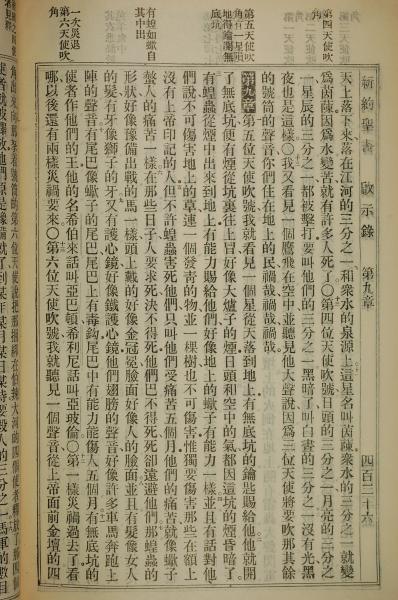 新約聖書 啟示錄 第九章 四百三十六
第四天使吹
角
第五天使吹
角有星隕
地得鑰開無
底坑
有蝗如蠍自
其中出
一次災退
第六天使吹
角
天上落下來落在江河的三分之一和衆水的泉源上這星名叫茵蔯衆水的三分之一就變
爲茵蔯因爲水變苦就有許多人死了〇第四位天使吹號日頭的三分之一月亮的三分之
一星辰的三分之一都被擊打要叫他們的三分之一黑暗了叫白晝的三分之一沒有光黑
夜也是這樣〇我又看見一個鷹飛在空中並聽見他大聲說因爲三位天使將要吹那其餘
的號筒的聲音你們住在地上的民禍哉禍哉禍哉
第九章 第五位天使吹號我就看見一個星從天落到地上有無底坑的鑰匙賜給他他就開
了無底坑便有煙從坑裏往上冒好像大爐子的煙日頭和空中的氣都因這坑的煙昏暗了
有蝗蟲從煙中出來到地上有能力賜給他們好像地上的蠍子有能力一樣並且有話對他
們說不可傷害地上的草連一個發青的物並一棵樹也不可傷害惟獨要傷害那些在額上
沒有上帝印記的人但不許蝗蟲害死他們只叫他們受痛苦五個月他們的痛苦就像蠍子
螫人的痛苦一樣在那些日子人要求死決不得死他們巴不得死死卻遠避他們那蝗蟲的
形狀好像豫備出戰的馬一樣頭上戴的好像金冠冕臉面好像人的臉面並且有髮像女人
的髮有牙像獅子的牙又有護心鏡好像鐵護心鏡他們翅膀的聲音好像許多車馬奔跑上
陣的聲音有尾巴像蠍子的尾巴尾巴上有毒鈎尾巴中有能力能傷人五個月有無底坑的
使者作他們的王他的名希伯來話叫亞巴頓希利尼話叫亞玻倫〇第一樣災禍過去了看
哪以後還有兩樣災禍要來〇第六位天使吹號我就聽見一個聲音從上帝面前金壇的四